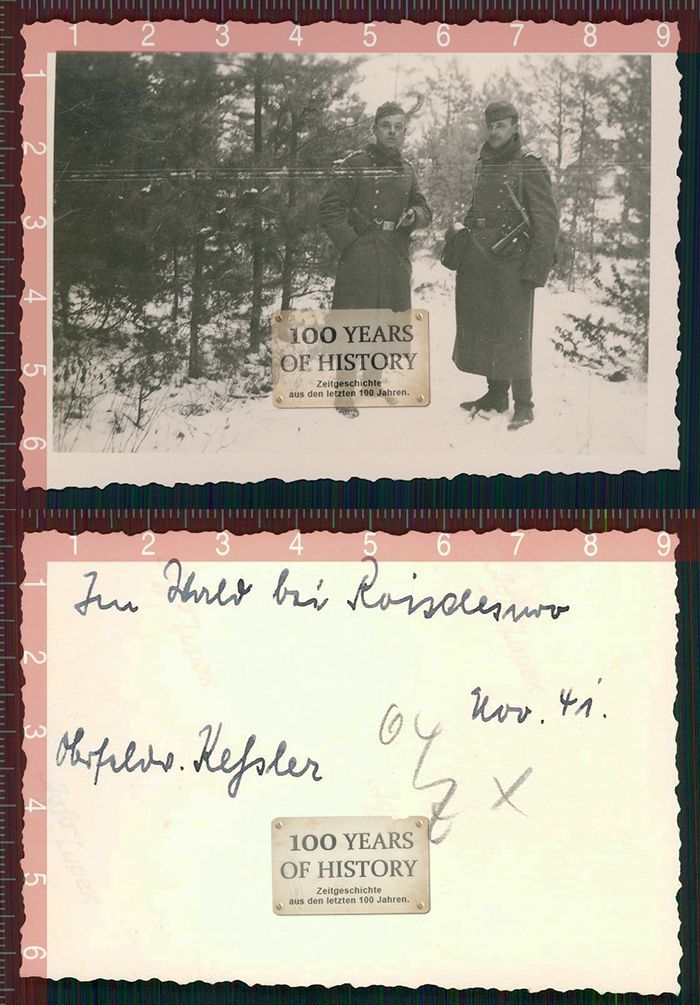 1 2 3 4 5 6 7 8 9
1
2
3
4
5
6
100 YEARS
OF HISTORY
Zeitgeschichte
aus den letzten 100 Jahren.
1 2 3 4 5 6 7 8 9
1
2
3
4
5
6
Im Wald bei
Nov. 41.
Obrfeldw. Keßler
x
100 YEARS
OF HISTORY
Zeitgeschichte
aus den letzten 100 Jahren.